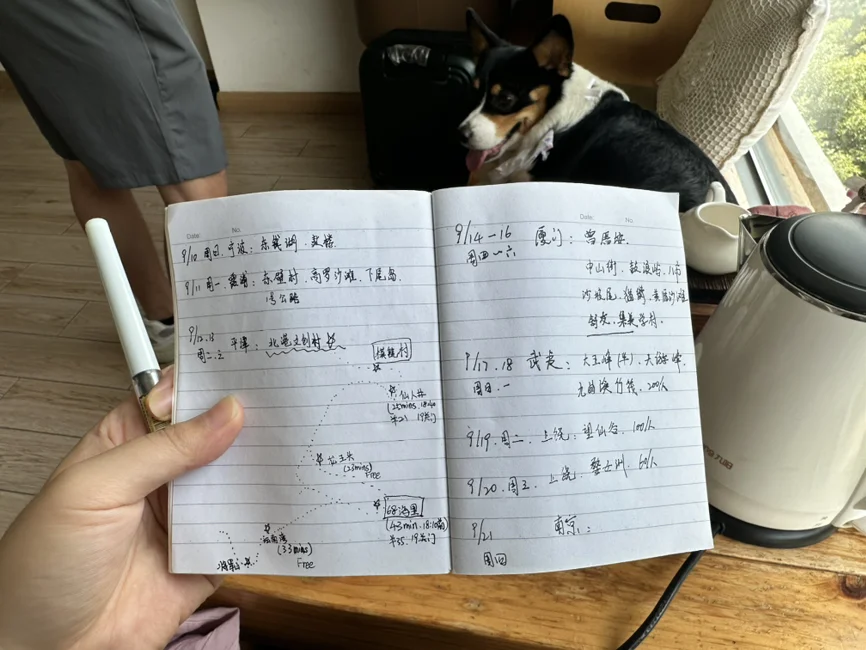 Date: No.
9/10 周日 宁波: 东钱湖.
9/11 周一. 霞浦: 东壁村. 高罗沙滩. 下尾岛.
1号公路
9/12.13
周二.三 平潭: 北港文创村
猴研村
仙人井
(25mins. 18:40
19关门
坛王头
(23mins)
Free
68海里
(43min. 18:10前)
19关门
(33mins)
Free
Date: No.
9/14-16 厦门: 曾厝垵.
周四-六
中山街. 鼓浪屿. 八市
沙坡尾. 猫街. 黄厝沙滩
集美学村.
9/17.18 武夷: 大王峰(半). 天游峰.
周日.一
九曲溪竹筏. 200/人
9/19. 周二. 上饶: 望仙谷. 100/人
9/20. 周三. 上饶. 婺女洲. 60/人
9/21 南京:
周四